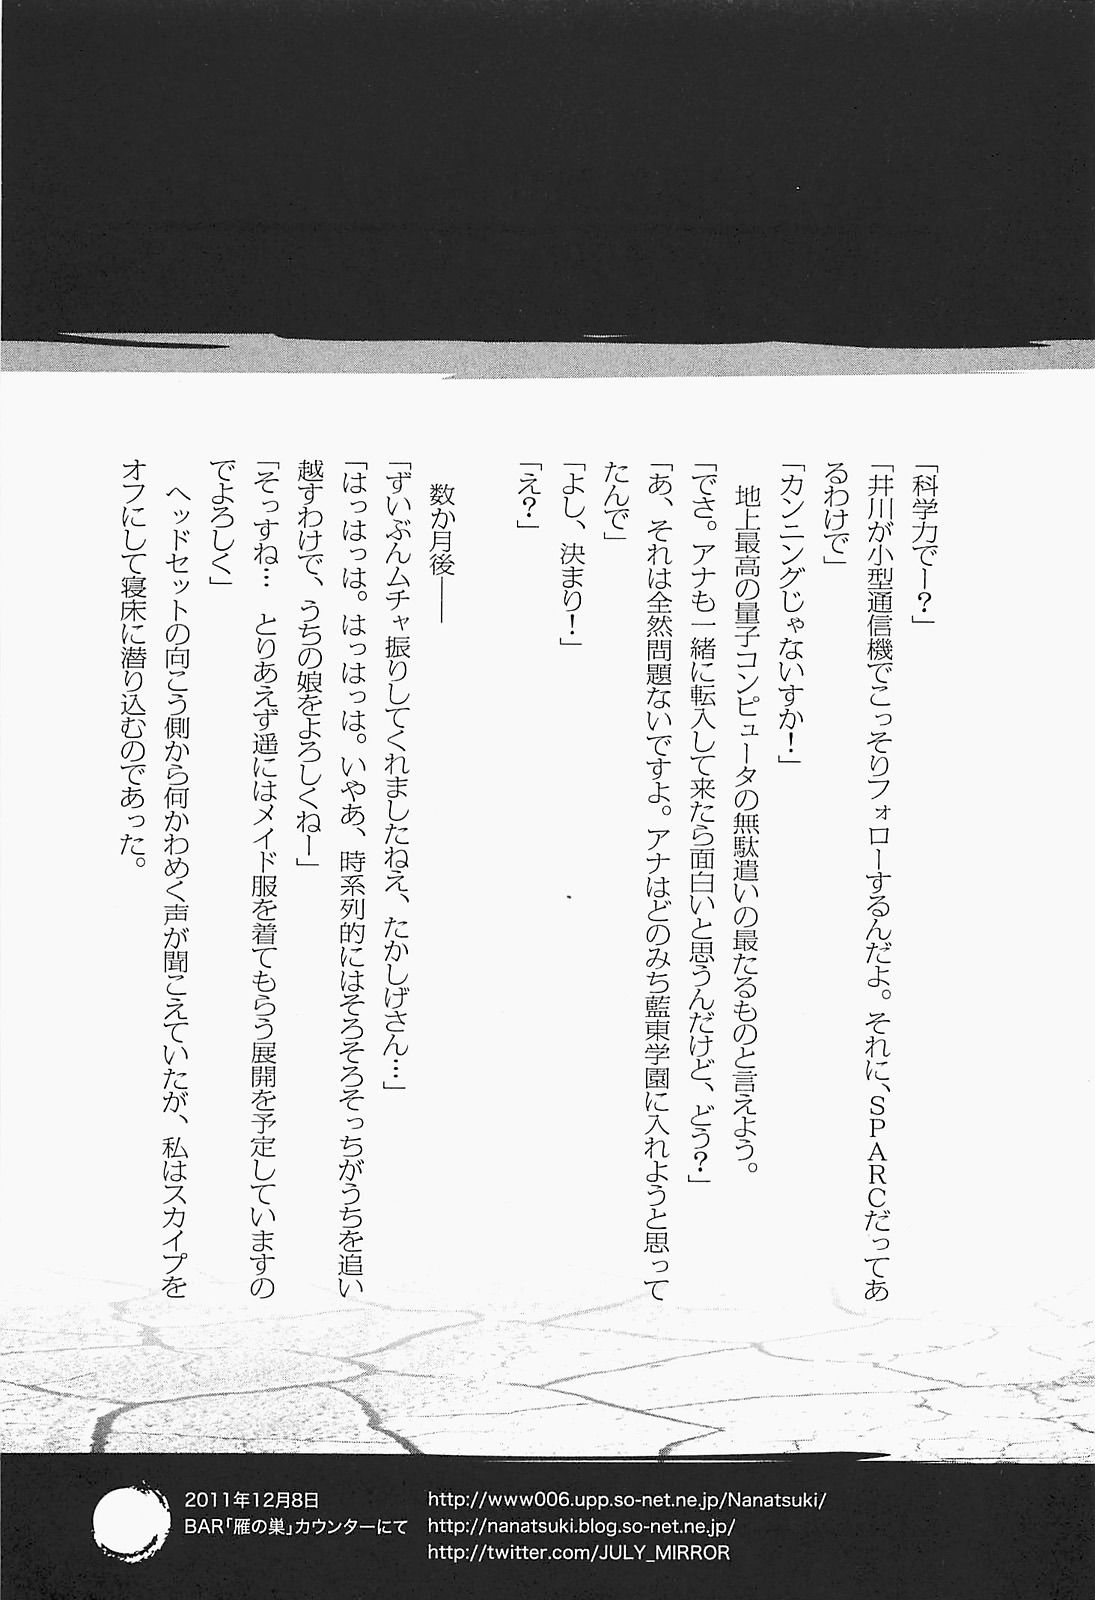 「科学力でー？」
「井川が小型通信機でこっそりフォローするんだよ。それに、ＳＰＡＲＣだってあ
るわけで」
「カンニングじゃないすか！」
　地上最高の量子コンピュータの無駄遣いの最たるものと言えよう。
「でさ。アナも一緒に転入して来たら面白いと思うんだけど、どう？」
「あ、それは全然問題ないですよ。アナはどのみち藍東学園に入れようと思って
たんで」
「よし、決まり！」
「え？」
　数か月後――
「ずいぶんムチャ振りしてくれましたねえ、たかしげさん…」
「はっはっは。はっはっは。いやあ、時系列的にはそろそろそっちがうちを追い
越すわけで、うちの娘をよろしくねー」
「そっすね…　とりあえず遥にはメイド服を着てもらう展開を予定していますの
でよろしく」
　ヘッドセットの向こう側から何かわめく声が聞こえていたが、私はスカイプを
オフにして寝床に潜り込むのであった。
2011年12月8日
BAR「雁の巣」カウンターにて
http://www006.upp.so-net.ne.jp/Nanatsuki/
http://nanatsuki.blog.so-net.ne.jp/
http://twitter.com/JULY_MIRROR